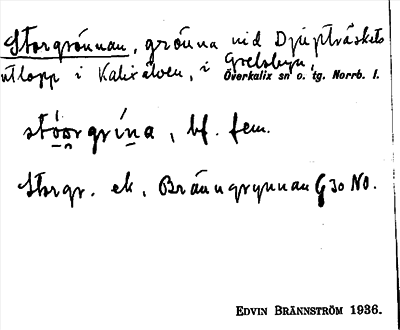 Storgrönnan, grönna vid Djupträskets
utlopp i Kalixälven, i Grelsbyn,
Överkalix sn o. tg. Norrb. l.
stǫ́ǫrgrína, bf. fem.
Storgr. ek. Bränngrynnan G 30 NO.
EDVIN BRÄNNSTRÖM 1936.